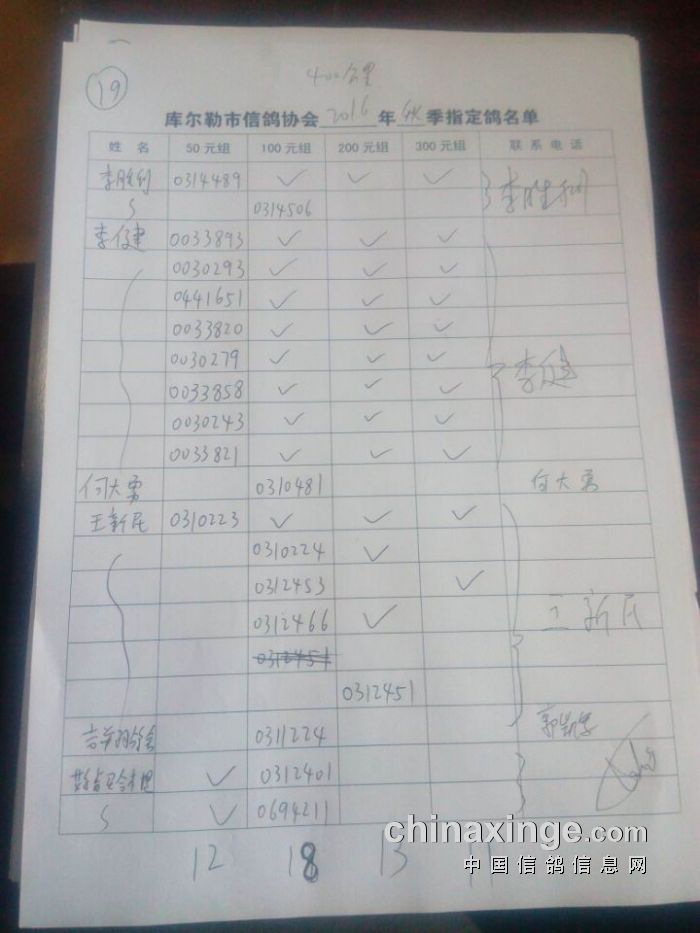 400公里
19
库尔勒市信鸽协会 2016 年 秋 季指定鸽名单
姓 名 50元组 100元组 200元组 300元组 联系电话
李胜利 0314489 ✓ ✓ ✓ 李胜利
0314506
李俊建 0033893 ✓ ✓ ✓
0030293 ✓ ✓ ✓
0441651 ✓ ✓ ✓
0033820 ✓ ✓ ✓
0030279 ✓ ✓ ✓
0033858 ✓ ✓ ✓
0030243 ✓ ✓ ✓
0033821 ✓ ✓ ✓
何大勇 0310481 何大勇
王新民 0310223 ✓ ✓ ✓
0310224 ✓
0312453 ✓
0312466 ✓ 王新民
0312454
0312451
0311224
✓ 0312401
✓ 0694211
12 18 13 11
chinaxinge.com
中国信鸽信息网